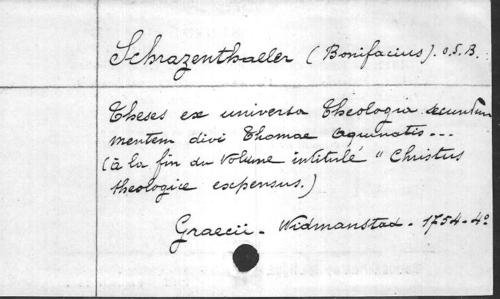 Schrazenthaeler (Bonifacius). O.S.B.
Theses ex universa Theologia secundum
mentem divi Thomae Aquinatis...
(à la fin du volume intitulé " Christus
theologice expensus.)
Graecii - Widmanstad - 1754 - 4º